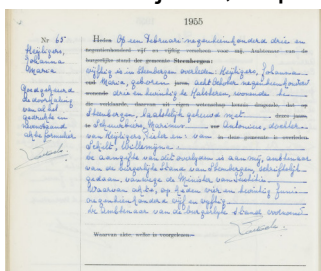 1955
Nr 65
Heijligers,
Johanna
Maria
Goedgekeurd
de doorhaling
van al het
gedrukte in
bovenstaand
formulier
Heden Op een Februari negentienhonderd drie en
negentienhonderd vijf en vijftig verscheen voor mij, Ambtenaar van de
burgerlijke stand der gemeente Steenbergen:
vijftig is in Steenbergen overleden: Heijligers, Johanna
Maria, geboren acht October negentienhonderd
drie en twintig te Halsteren, wonende
de verklaarde, daarvan uit eigen wetenschap kennis dragende, dat
Steenbergen, laatstelijk gehuwd met
Antonius, dochter
van Heijligers, Pieter en van in deze gemeente is overleden
Schilt, Willemijna
De aangifte van dit overlijden is aan mij, ambtenaar
van de burgerlijke stand van Steenbergen, schriftelijk
gedaan, vanwege de Minister van Justitie.
Waarvan akte, op heden vier en twintig Juni
negentienhonderd vijf en vijftig.
De ambtenaar van de burgerlijke stand voornoemd
Waarvan akte, welke is voorgelezen